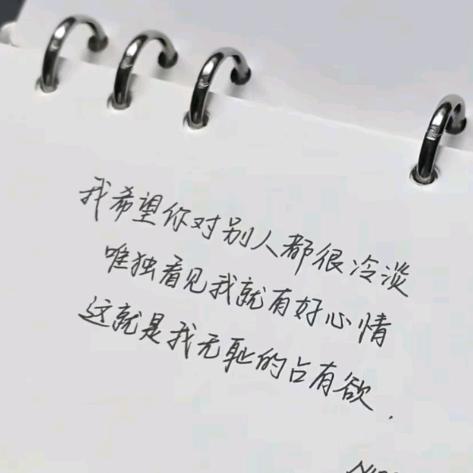 我希望你对别人都很冷淡
唯独看见我就有好心情
这就是我无耻的占有欲.